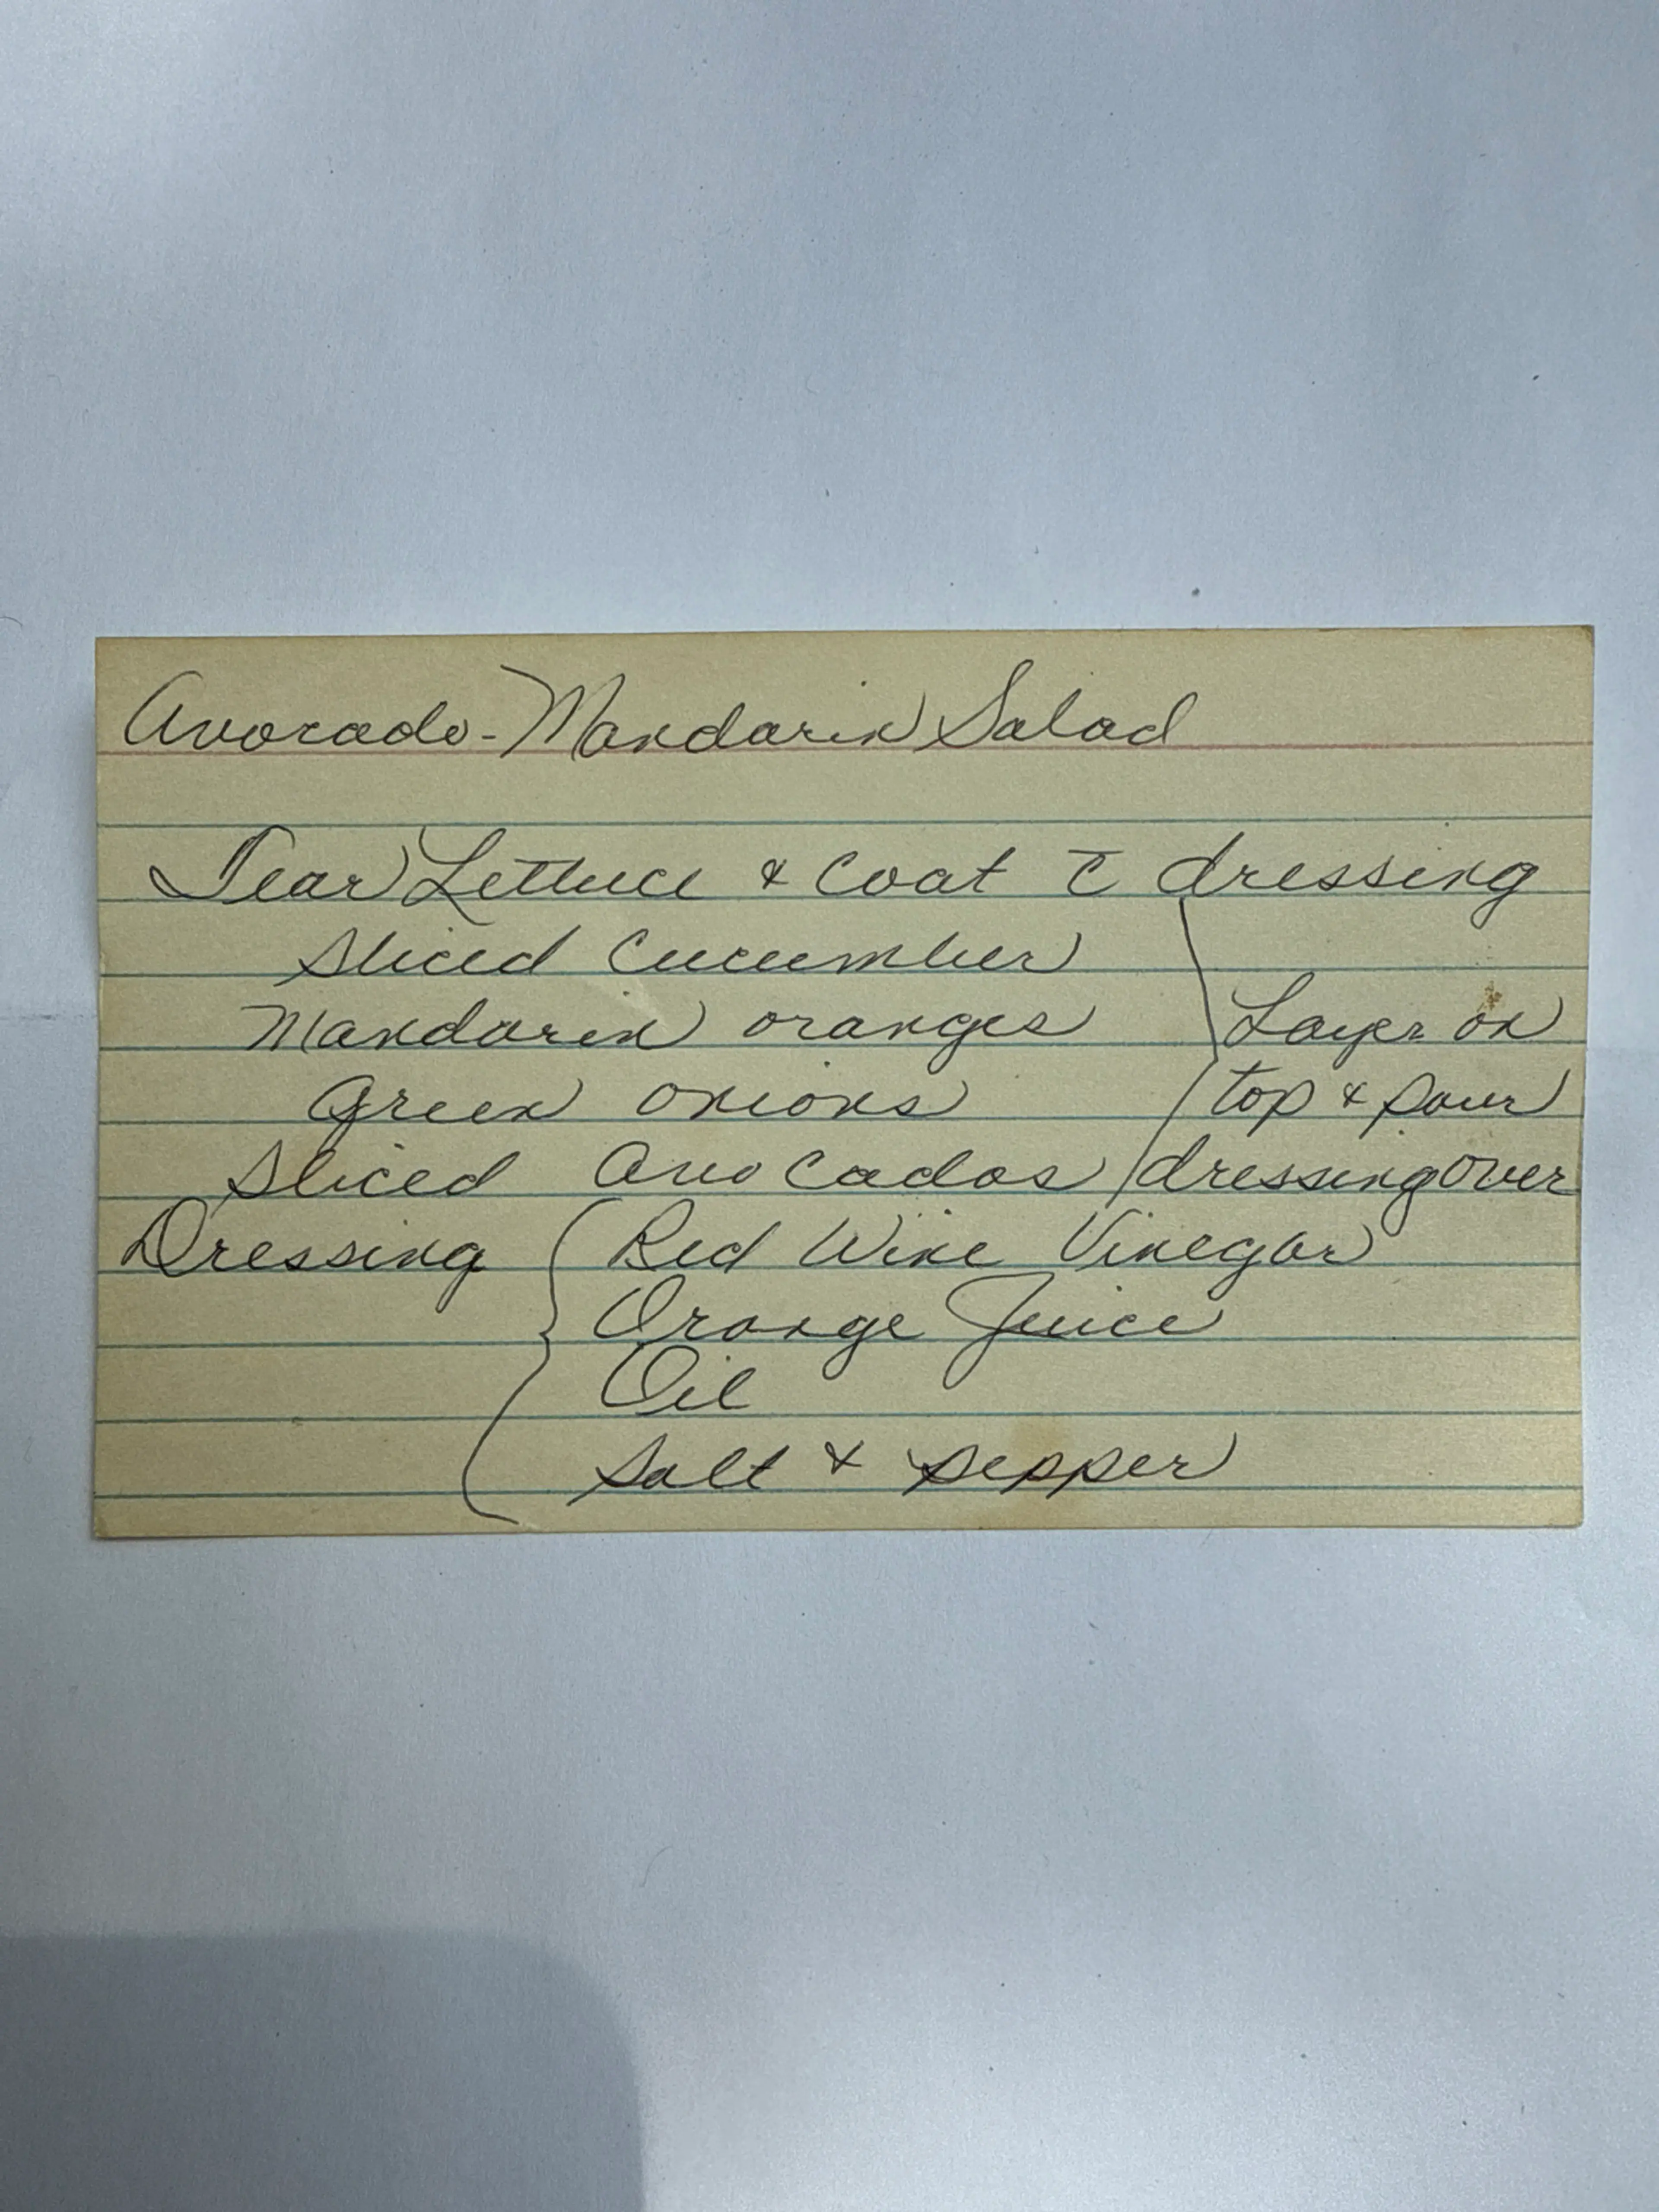 Avocado-Mandarin Salad
Tear Lettuce & Coat c̄ dressing
Sliced Cucumber
Mandarin oranges
Green onions
Sliced Avocados
Layer on
top & pour
dressing over
Dressing
Red Wine Vinegar
Orange Juice
Oil
Salt & pepper